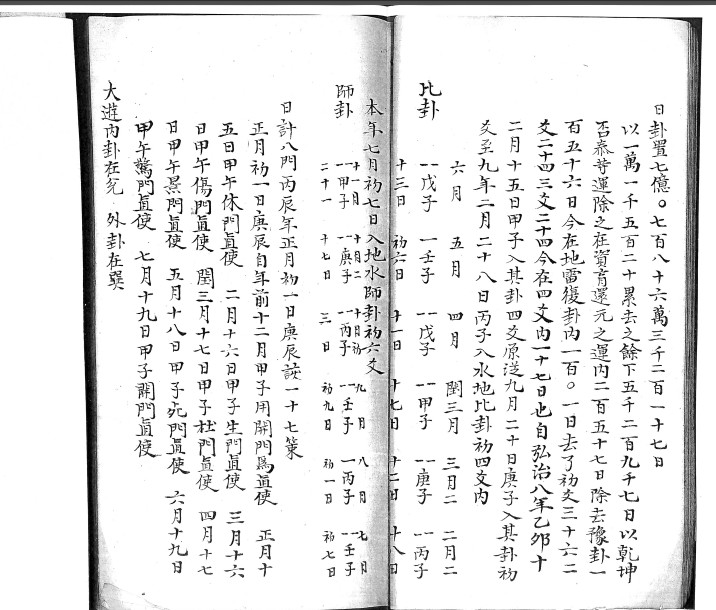 日卦置七億〇七百八十六萬三千二百一十七日
以一萬一千五百二十累去之餘下五千二百九千七日以乾坤
否泰等運除之在資育還元之運內二百五十七日除去豫卦一
百五十六日今在地雷復卦內一百〇一日去了初爻三十六二
爻二十四三爻二十四今在四爻內一十七日也自弘治八年乙卯十
二月十五日甲子入其卦四爻原送九月二十日庚子入其卦初
爻至九年二月二十八日丙子入水地比卦初四爻內
比卦
六月 五月 四月 閏三月 三月二 二月二
一戊子 一壬子 一戊子 一甲子 一庚子 一丙子
十三日 初六日 十一日 十七日 十二日 十八日
本年七月初七日入地水師卦初六爻
師卦
十一月 十月二 十月初 九月 八月 七月
一甲子 一庚子 一丙子 一壬子 一丙子 一壬子
二十一 十七日 三日 初九日 初一日 初七日
日計八門丙辰年正月初一日庚辰該一十七策
正月初一日庚辰自年前十二月甲子用開門爲直使 正月十
五日甲午休門直使 二月十六日甲子生門直使 三月十六
日甲午傷門直使 閏三月十七日甲子杜門直使 四月十七
日甲午景門直使 五月十八日甲子死門直使 六月十九日
甲午驚門直使 七月十九日甲子開門直使
大遊內卦在兌 外卦在巽